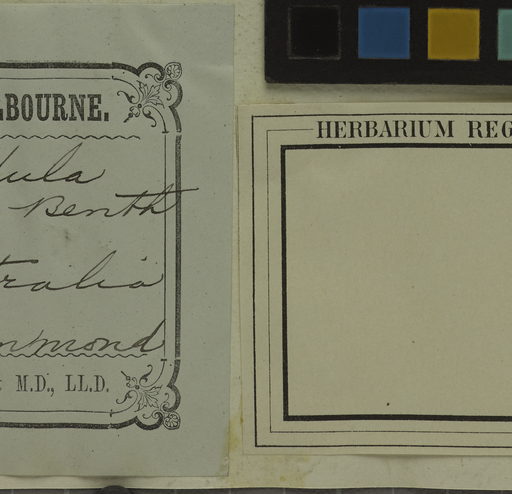 LBOURNE.
ula
Benth
tralia
mmond
M.D., LL.D.
HERBARIUM REG